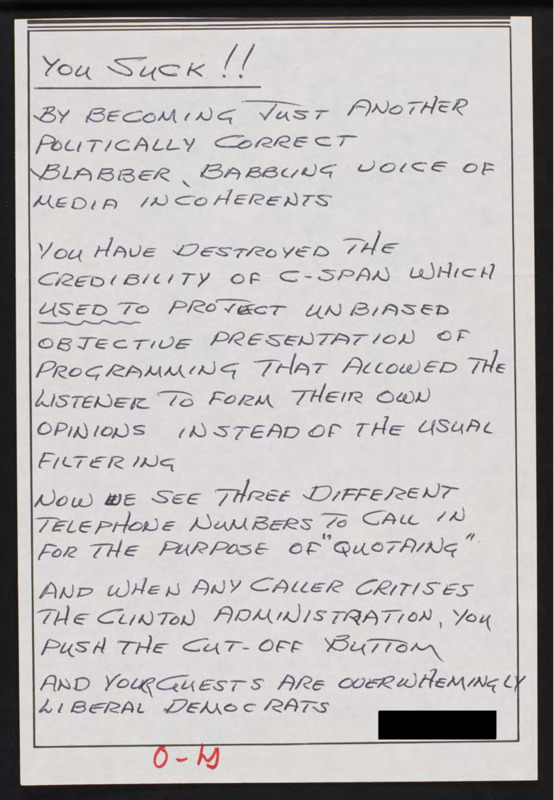 YOU SUCK !!
BY BECOMING JUST ANOTHER
POLITICALLY CORRECT
BLABBER, BABBLING VOICE OF
MEDIA INCOHERENTS
YOU HAVE DESTROYED THE
CREDIBILITY OF C-SPAN WHICH
USED TO PROJECT UNBIASED
OBJECTIVE PRESENTATION OF
PROGRAMMING THAT ALLOWED THE
LISTENER TO FORM THEIR OWN
OPINIONS INSTEAD OF THE USUAL
FILTERING
NOW WE SEE THREE DIFFERENT
TELEPHONE NUMBERS TO CALL IN
FOR THE PURPOSE OF "QUOTAING"
AND WHEN ANY CALLER CRITISES
THE CLINTON ADMINISTRATION, YOU
PUSH THE CUT-OFF BUTTOM
AND YOUR GUESTS ARE OVERWHEMINGLY
LIBERAL DEMOCRATS